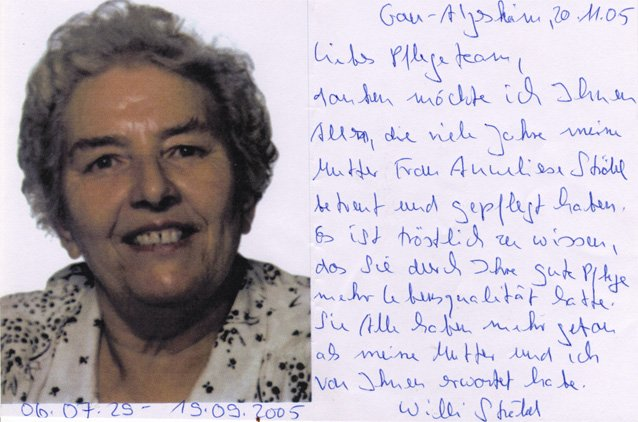 Gau-Algesheim, 20.11.05
Liebes Pflegeteam,
danken möchte ich Ihnen
Allen, die viele Jahre meine
Mutter Frau Anneliese Ströbel
betreut und gepflegt haben.
Es ist tröstlich zu wissen,
das Sie durch Ihre gute Pflege
mehr Lebensqualität hatte.
Sie Alle haben mehr getan
als meine Mutter und ich
von Ihnen erwartet habe.
Willi Ströbel
06.07.29 - 19.09.2005